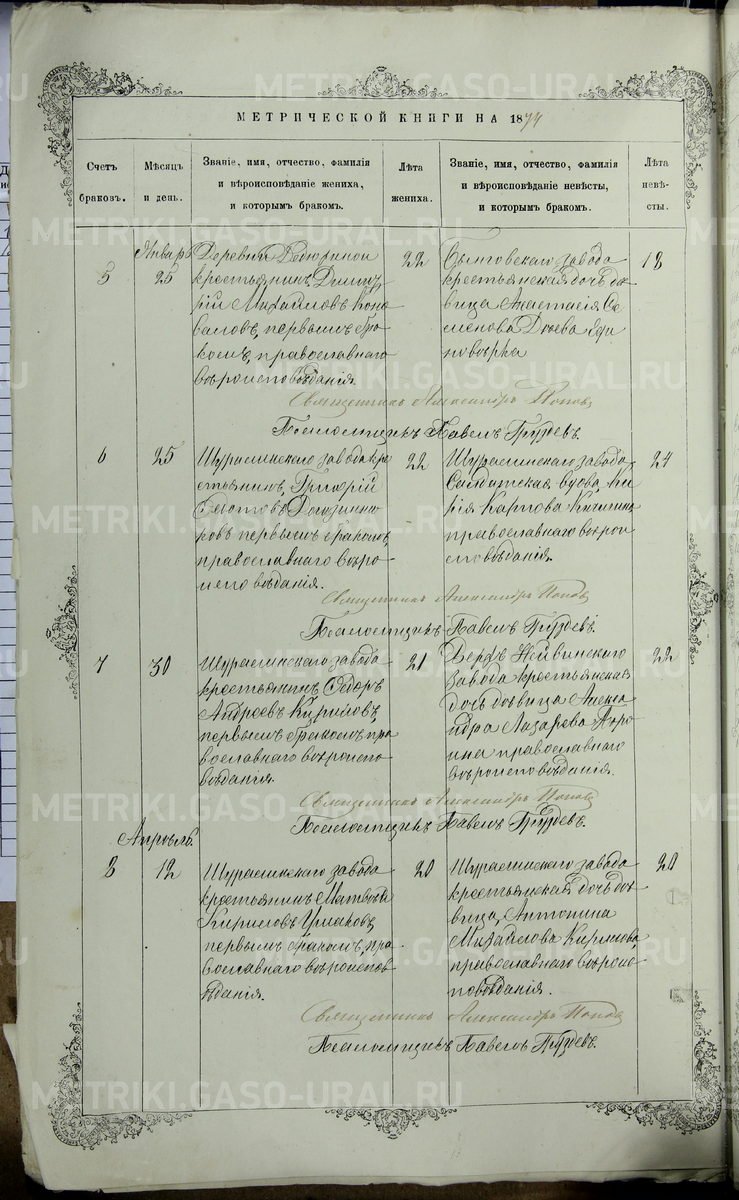 МЕТРИЧЕСКОЙ КНИГИ НА 1874
Счетъ браковъ.
Мѣсяцъ и день.
Званіе, имя, отчество, фамилія
и вѣроисповѣданіе жениха,
и которымъ бракомъ.
Лѣта жениха.
Званіе, имя, отчество, фамилія
и вѣроисповѣданіе невѣсты,
и которымъ бракомъ.
Лѣта невѣ-сты.
Январь
5
25
Деревни
крестьянинъ Дмит-
рій Михайловъ Коно-
валовъ, первымъ бра-
комъ, православнаго
вѣроисповѣданія.
22
завода
крестьянская дочь дѣ-
вица Анастасія Се-
менова Еди-
новѣрка
18
Священникъ Александръ Поповъ
Псаломщикъ Павелъ Груздевъ.
6
25
Шуралинскаго завода кре-
стьянинъ, Григорій
первымъ бракомъ,
православнаго вѣро-
исповѣданія.
22
Шуралинскаго завода,
Солдатская вдова Ма-
рія Карпова
православнаго вѣрои-
споведанія.
24
Священникъ Александръ Поповъ
Псаломщикъ Павелъ Груздевъ.
7
30
Шуралинскаго завода
крестьянинъ Ѳедоръ
Андреевъ Кириловъ,
первымъ бракомъ, пра-
вославнаго вѣроиспо-
вѣданія.
21
Верхъ Нейвинскаго
завода крестьянская
дочь дѣвица Алекса-
ндра Лазарева
православнаго
вѣроисповѣданія.
22
Священникъ Александръ Поповъ
Псаломщикъ Павелъ Груздевъ.
Апрѣль.
8
12
Шуралинскаго завода
крестьянинъ Матвѣй
Кириловъ Ушаковъ,
первымъ бракомъ, пра-
вославнаго вѣроиспов-
ѣданія.
20
Шуралинскаго завода
крестьянская дочь дѣ-
вица, Антонина
Михайлова Кирилова,
православнаго вѣроис-
повѣданія.
20
Священникъ Александръ Поповъ
Псаломщикъ Павелъ Груздевъ.
METRIKI.GASO-URAL.RU